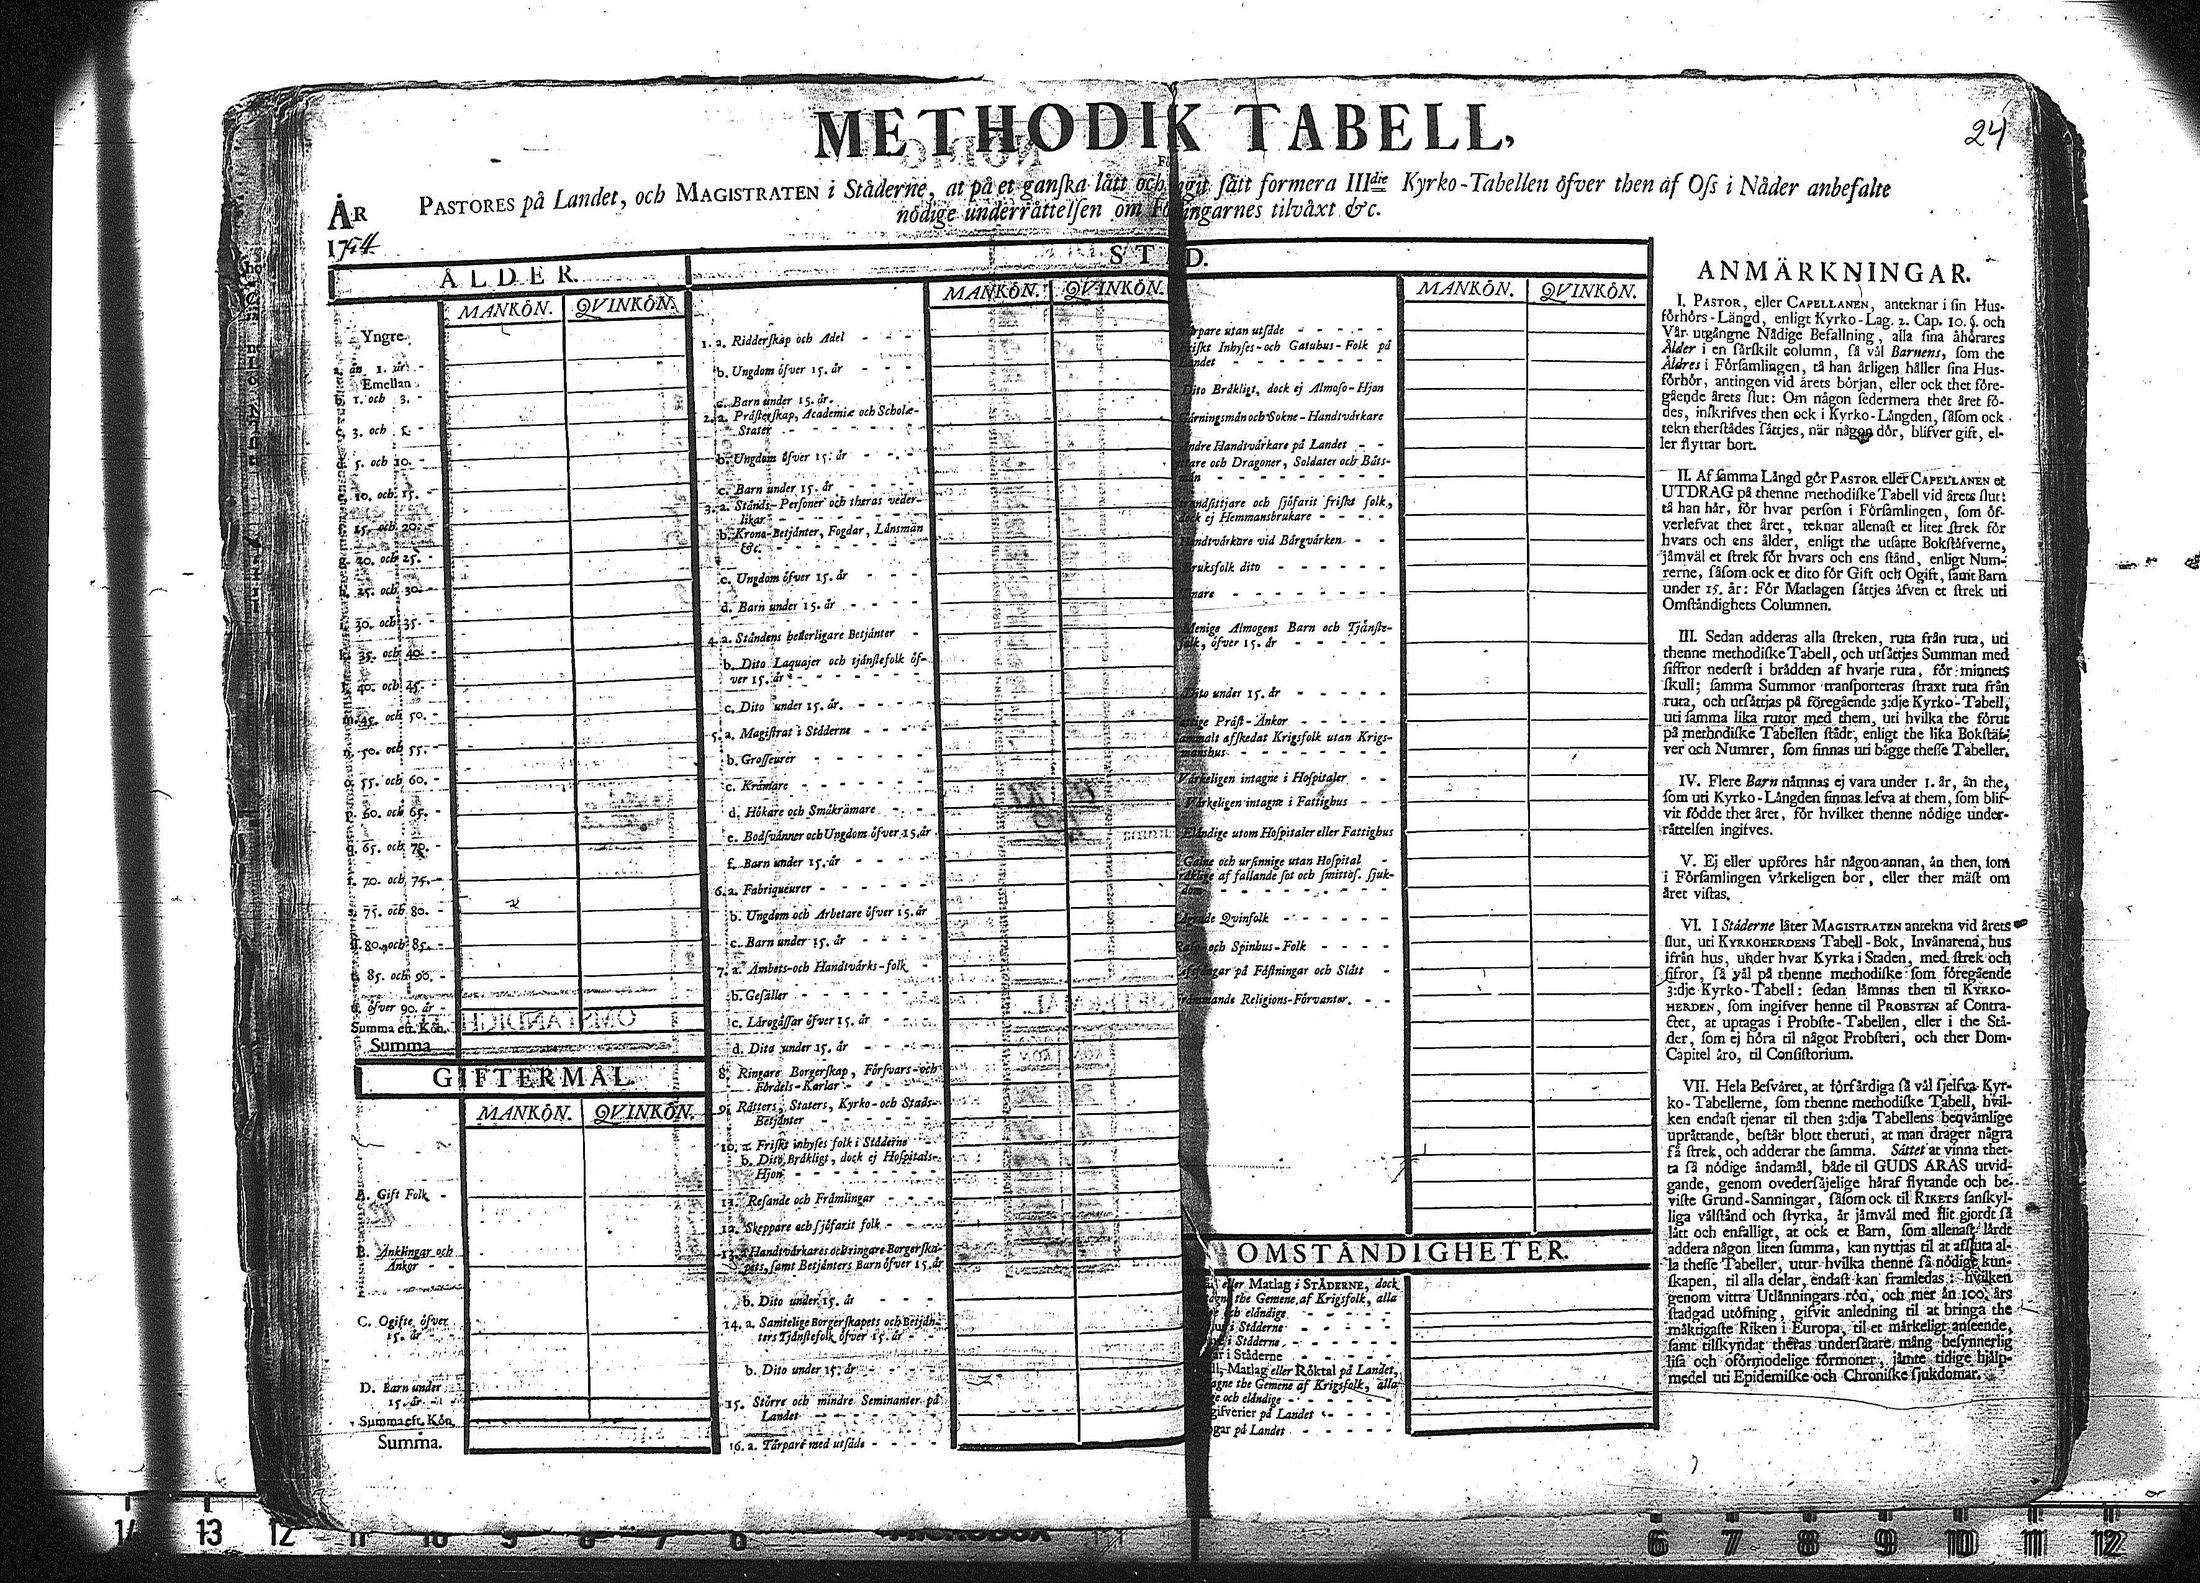 METHODIK TABELL,
24
ÅR
1754
PASTORES på Landet, och MAGISTRATEN i Städerne, at på et ganſka lått och ſått formera IIIdie Kyrko-Tabellen öfver then af Oſs i Nåder anbefalte
nödige underråttelſen om ingarnes tilvåxt &c.
ÅLDER.
MANKÖN. QVINKÖN.
Yngre
a. ån 1. år -
Emellan
b. 1. och 3. -
c. 3. och 5. -
d. 5. och 10. -
10. och 15. -
15. och 20. -
20. och 25. -
25. och 30. -
30. och 35. -
35. och 40. -
40. och 45. -
m. 45. och 50. -
50. och 55. -
55. och 60. -
60. och 65. -
q. 65. och 70. -
70. och 75. -
75. och 80. -
80. och 85. -
85. och 90. -
öfver 90. år
Summa eft. Kön.
Summa
GIFTERMÅL
MANKÖN. QVINKÖN.
A. Gift Folk -
B. Änklingar och
Änkor - -
C. Ogifte öfver
15. år -
D. Barn under
15. år -
Summa eft. Kön
Summa.
ST D.
MANKÖN. QVINKÖN.
1. a. Ridderſkap och Adel - - -
b. Ungdom öfver 15. år - - -
c. Barn under 15. år.
2. a. Pråſterſkap, Academiæ och Scholæ-
Stater - - - - - -
b. Ungdom öfver 15. år - - -
c. Barn under 15. år - - -
3. a. Stånds-Perſoner och theras veder-
likar - - - - - -
b. Krono-Betjånter, Fogdar, Lånsmån
&c. - - - - - -
c. Ungdom öfver 15. år - - -
d. Barn under 15. år - - -
4. a. Ståndens hederligare Betjånter -
b. Dito Laquajer och tjånſtefolk öf-
ver 15. år - - - - -
c. Dito under 15. år. - - -
5. a. Magiſtrat i Städerne - - -
b. Groſſeurer - - - - -
c. Kråmare - - - - -
d. Hökare och Småkråmare - -
e. Bodſvånner och Ungdom öfver 15. år
f. Barn under 15. år - - -
6. a. Fabriqueurer - - - - -
b. Ungdom och Arbetare öfver 15. år
c. Barn under 15. år - - -
7. a. Åmbets- och Handtvårks-folk -
b. Geſåller - - - - -
c. Lårogåſſar öfver 15. år - -
d. Dito under 15. år - - -
8. Ringare Borgerſkap, Förſvars- och
Fördels-Karlar - - - -
9. Råtters, Staters, Kyrko- och Stads-
Betjånter - - - - -
10. a. Friſkt inhyſes folk i Städerne -
b. Dito Bråkligt, dock ej Hoſpitals-
Hjon - - - - - -
11. Reſande och Fråmlingar - - -
12. Skeppare och ſjöfarit folk - - -
13. a. Handtvårkares och ringare Borgerſka-
pets, ſamt Betjånters Barn öfver 15. år
b. Dito under 15. år - - -
14. a. Samtelige Borgerſkapets och Betjån-
ters Tjånſtefolk öfver 15. år - -
b. Dito under 15. år - - -
15. Större och mindre Seminanter på
Landet - - - - -
16. a. Tårpare med utſåde - - - -
MANKÖN. QVINKÖN.
utan utſåde - - - - -
Inhyſes- och Gatuhus-Folk på
- - - - - -
Dito Bråkligt, dock ej Almoſo-Hjon
Gårningsmån och Sokne-Handtvårkare
Handtvårkare på Landet - -
och Dragoner, Soldater och Båts-
- - - - - -
och ſjöfarit friſkt folk,
ej Hemmansbrukare - - - -
Handtvårkare vid Bårgvårken - -
Bruksfolk dito - - - - - -
- - - - - -
Menige Almogens Barn och Tjånſte-
folk, öfver 15. år - - - - -
Dito under 15. år - - - - -
Pråſt-Änkor - - - - -
afſkedat Krigsfolk utan Krigs-
manshus - - - - - -
Vårkeligen intagne i Hoſpitaler - -
Vårkeligen intagne i Fattighus - -
utom Hoſpitaler eller Fattighus
Galne och urſinnige utan Hoſpital -
af fallande ſot och ſmittoſ. ſjuk-
- - - - - -
Qvinfolk - - - - -
och Spinhus-Folk - - - -
på Fåſtningar och Slått -
Religions-Förvanter. - -
OMSTÅNDIGHETER.
eller Matlag i STÅDERNE, dock
the Gemene af Krigsfolk, alla
och elåndige - - - - -
i Städerne - - - - -
i Städerne - - - - -
i Städerne - - - - -
Matlag eller Röktal på Landet,
the Gemene af Krigsfolk, alla
och elåndige - - - - -
på Landet - - - - -
på Landet - - - - -
ANMÄRKNINGAR.
I. PASTOR, eller CAPELLANEN, anteknar i ſin Hus-
förhörs-Långd, enligt Kyrko-Lag. 2. Cap. 10. §. och
Vår utgångne Nådige Befallning, alla ſina åhörares
Ålder i en ſårſkilt column, ſå vål Barnens, ſom the
Åldres i Förſamlingen, tå han årligen håller ſina Hus-
förhör, antingen vid årets början, eller ock thet före-
gående årets ſlut: Om någon ſedermera thet året fö-
des, inſkrifves then ock i Kyrko-Långden, ſåſom ock
tekn therſtådes ſåttjes, når någon dör, blifver gift, el-
ler flyttar bort.
II. Af ſamma Långd gör PASTOR eller CAPELLANEN et
UTDRAG på thenne methodiſke Tabell vid årets ſlut:
tå han hår, för hvar perſon i Förſamlingen, ſom öf-
verlefvat thet året, teknar allenaſt et litet ſtrek för
hvars och ens ålder, enligt the utſatte Bokſtåfverne,
jåmvål et ſtrek för hvars och ens ſtånd, enligt Num-
rerne, ſåſom ock et dito för Gift och Ogift, ſamt Barn
under 15. år: För Matlagen ſåttjes åfven et ſtrek uti
Omſtåndighets Columnen.
III. Sedan adderas alla ſtreken, ruta från ruta, uti
thenne methodiſke Tabell, och utſåttjes Summan med
ſiffror nederſt i brådden af hvarje ruta, för minnets
ſkull; ſamma Summor tranſporteras ſtraxt ruta från
ruta, och utſåttjas på föregående 3:dje Kyrko-Tabell,
uti ſamma lika rutor med them, uti hvilka the förut
på methodiſke Tabellen ſtådt, enligt the lika Bokſtåf-
ver och Numrer, ſom finnas uti bågge theſſe Tabeller.
IV. Flere Barn nåmnas ej vara under 1. år, ån the,
ſom uti Kyrko-Långden finnas lefva at them, ſom blif-
vit födde thet året, för hvilket thenne nödige under-
råttelſen ingifves.
V. Ej eller upföres hår någon annan, ån then, ſom
i Förſamlingen vårkeligen bor, eller ther måſt om
året viſtas.
VI. I Städerne låter MAGISTRATEN antekna vid årets
ſlut, uti KYRKOHERDENS Tabell-Bok, Invånarena, hus
ifrån hus, under hvar Kyrka i Staden, med ſtrek och
ſifror, ſå vål på thenne methodiſke ſom föregående
3:dje Kyrko-Tabell: ſedan låmnas then til KYRKO-
HERDEN, ſom ingifver henne til PROBSTEN af Contra-
ctet, at uptagas i Probſte-Tabellen, eller i the Stå-
der, ſom ej höra til något Probſteri, och ther Dom-
Capitel åro, til Conſiſtorium.
VII. Hela Beſvåret, at förfårdiga ſå vål ſjelfva Kyr-
ko-Tabellerne, ſom thenne methodiſke Tabell, hvil-
ken endaſt tjenar til then 3:dje Tabellens beqvåmlige
upråttande, beſtår blott theruti, at man dråger några
få ſtrek, och adderar the ſamma. Såttet at vinna thet-
ta ſå nödige åndamål, både til GUDS ÅRAS utvid-
gande, genom overderſåjelige håraf flytande och be-
viſte Grund-Sanningar, ſåſom ock til RIKETS ſanſkyl-
liga vålſtånd och ſtyrka, år jåmvål med flit gjordt ſå
lått och enfalligt, at ock et Barn, ſom allenaſt lårdt
addera någon liten ſumma, kan nyttjas til at afſluta al-
la theſſe Tabeller, utur hvilka thenne ſå nödige kun-
ſkapen, til alla delar, endaſt kan framledas: hvilken
genom vittra Utlånningars rön, och mer ån 100. års
ſtadgad utöfning, gifvit anledning til at bringa the
måktigaſte Riken i Europa, til et mårkeligt anſeende,
ſamt tilſkyndat theras underſåtare mång beſynnerlig
liſa och oförmodelige förmoner, jåmte tidige hjålp-
medel uti Epidemiſke och Chroniſke ſjukdomar.
14 13 12 11 10 9 8 7 6
6 7 8 9 10 11 12